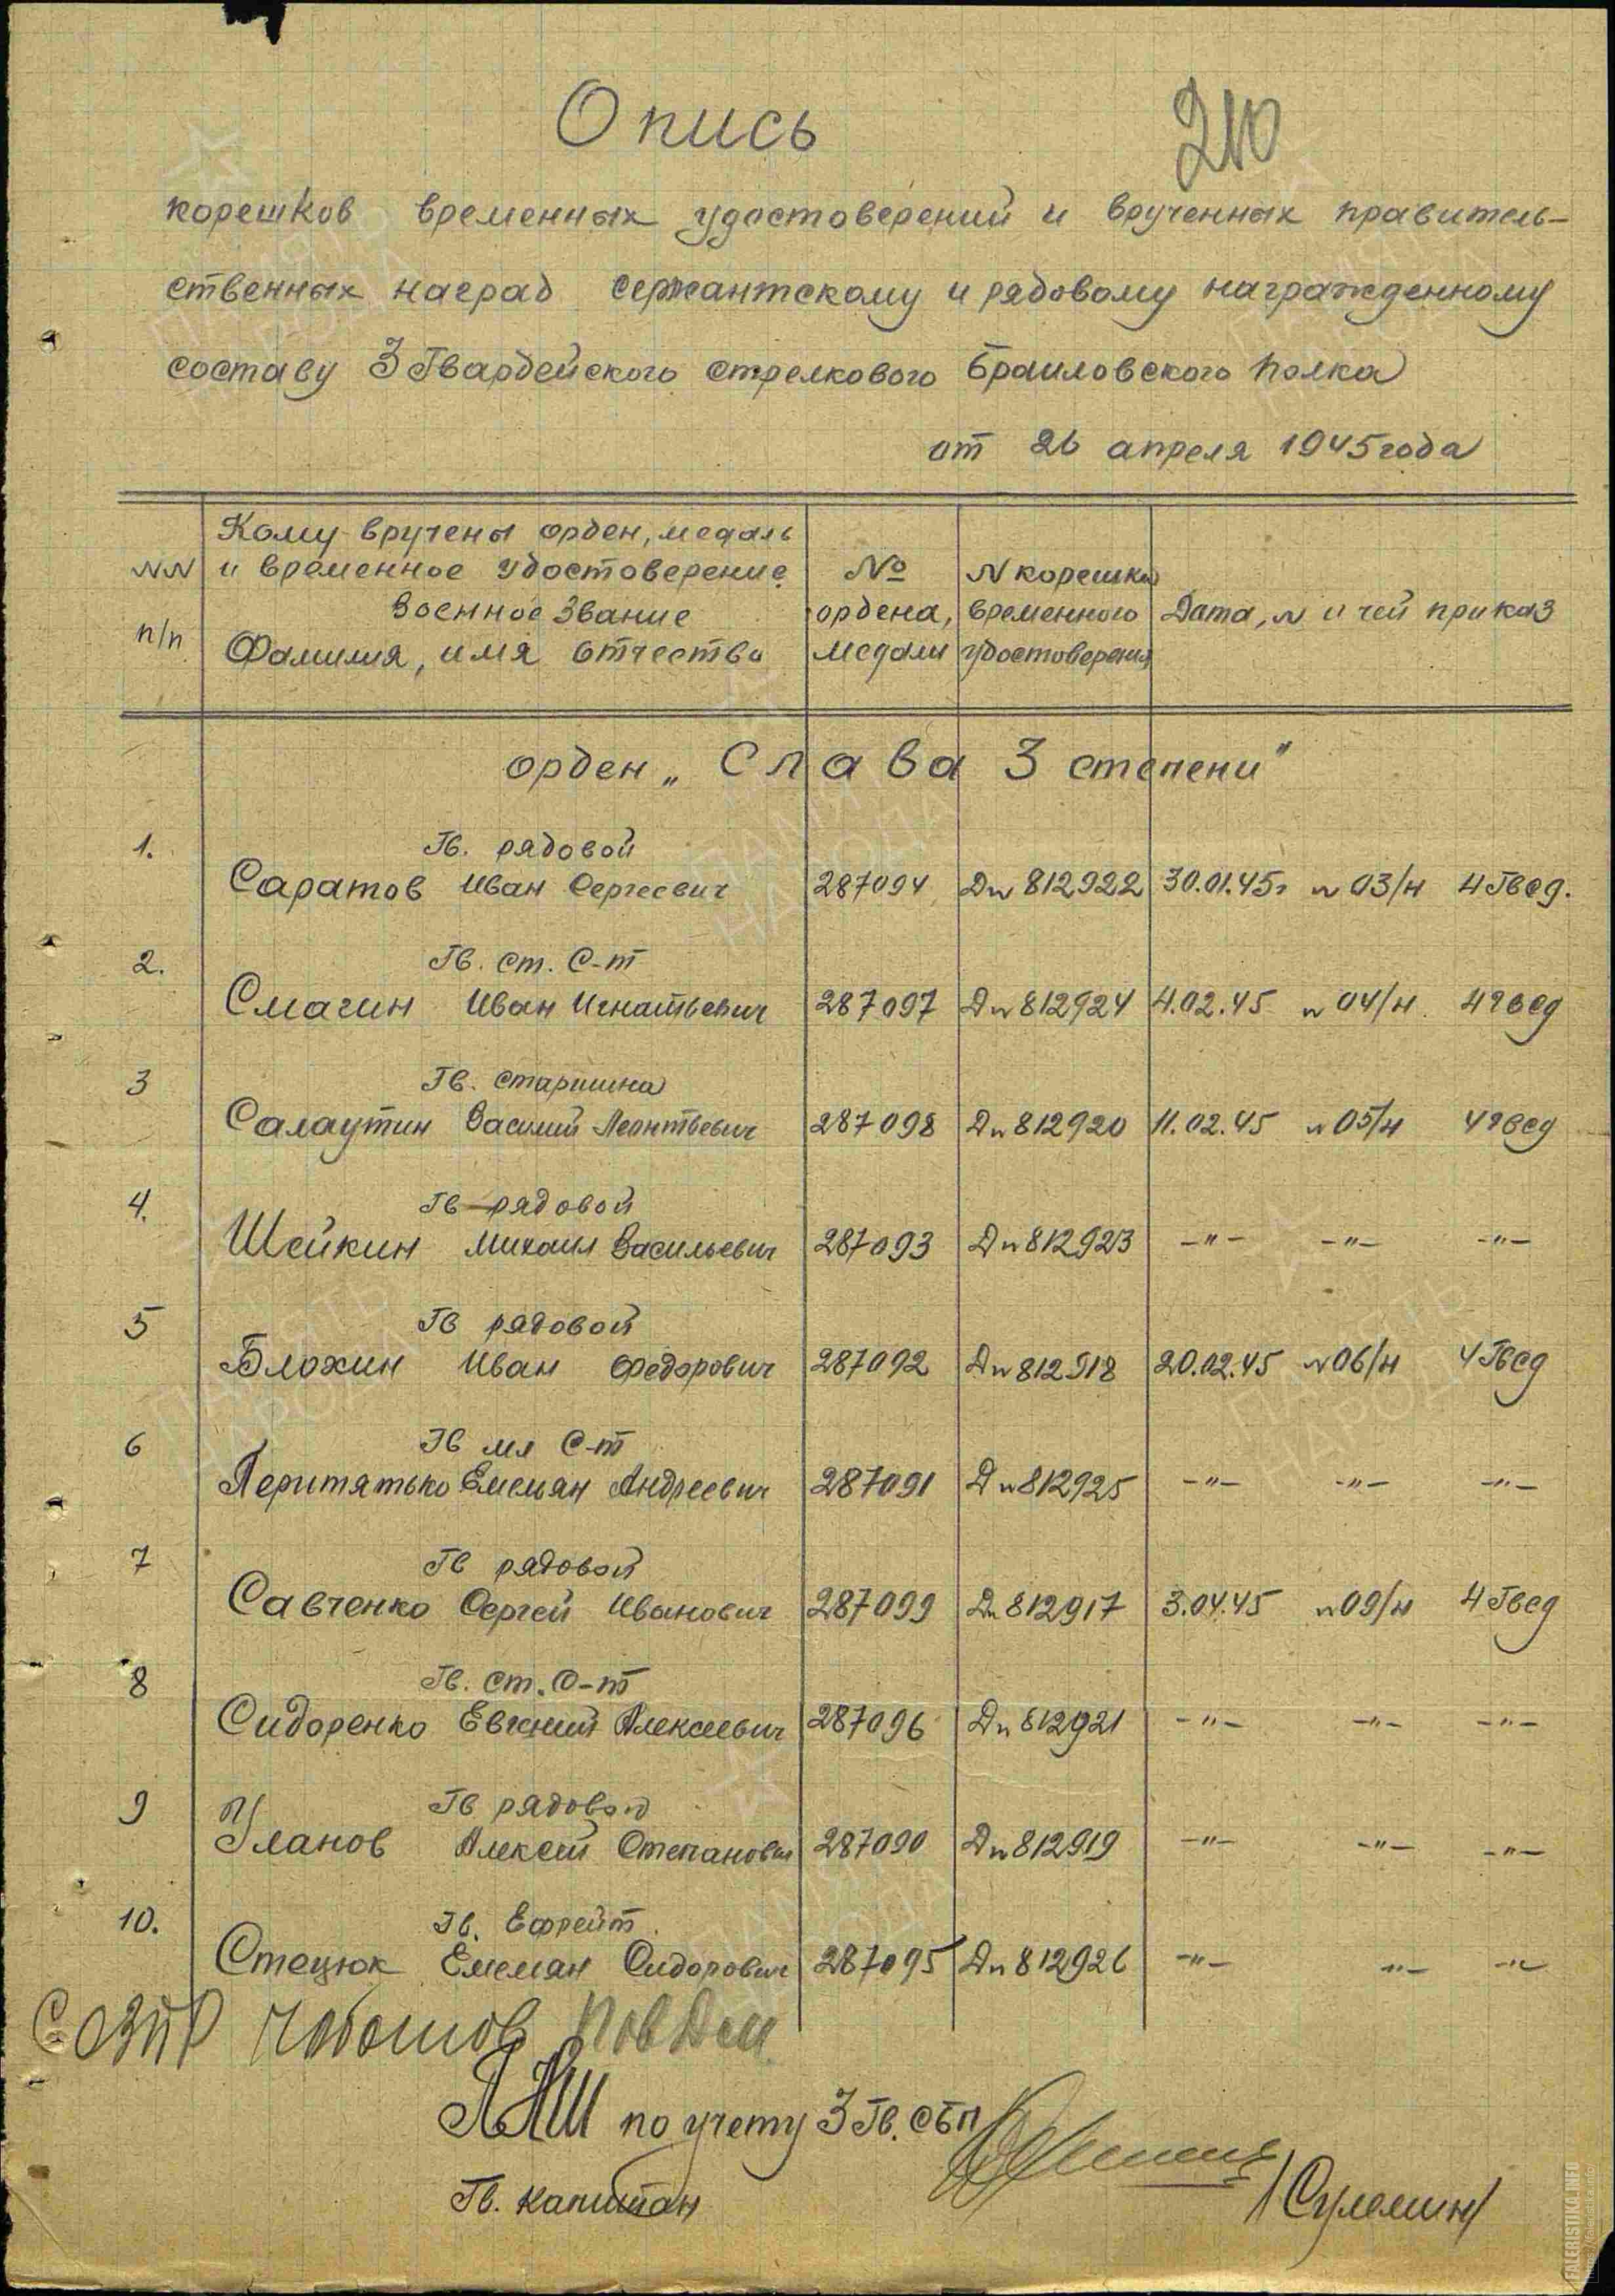 Опись
210
корешков временных удостоверений и врученных правитель-
ственных наград сержантскому и рядовому награжденному
составу 3 Гвардейского стрелкового Браиловского полка
от 26 апреля 1945 года
NN п/п
Кому вручены орден, медаль
и временное удостоверение.
Военное звание
Фамилия, имя отчество
№ ордена, медали
N корешка временного удостоверения
Дата, N и чей приказ
орден „Слава 3 степени"
1. Гв. рядовой
Саратов Иван Сергеевич 287094 Д N 812922 30.01.45г N 03/н 4 Гвсд.
2. Гв. ст. С-т
Смагин Иван Игнатьевич 287097 Д N 812924 4.02.45 N 04/н. 4 гвсд
3 Гв. старшина
Салаутин Василий Леонтьевич 287098 Д N 812920 11.02.45 N 05/н 4 гвсд
4. Гв рядовой
Шейкин Михаил Васильевич 287093 Д N 812923 -"- -"- -"-
5 Гв рядовой
Блохин Иван Федорович 287092 Д N 812918 20.02.45 N 06/н 4 Гвсд
6 Гв мл С-т
Перитятько Емельян Андреевич 287091 Д N 812925 -"- -"- -"-
7 Гв рядовой
Савченко Сергей Иванович 287099 Д N 812917 3.04.45 N 09/н 4 Гвсд
8 Гв. ст. С-т
Сидоренко Евгений Алексеевич 287096 Д N 812921 -"- -"- -"-
9 Гв рядовой
Уланов Алексей Степанович 287090 Д N 812919 -"- -"- -"-
10. Гв. Ефрейт.
Стецюк Емельян Сидорович 287095 Д N 812926 -"- -"- -"-
ПНШ по учету 3 Гв. СБП
Гв. капитан
/Сулемин/
ПАМЯТЬ НАРОДА
FALERISTIKA.INFO